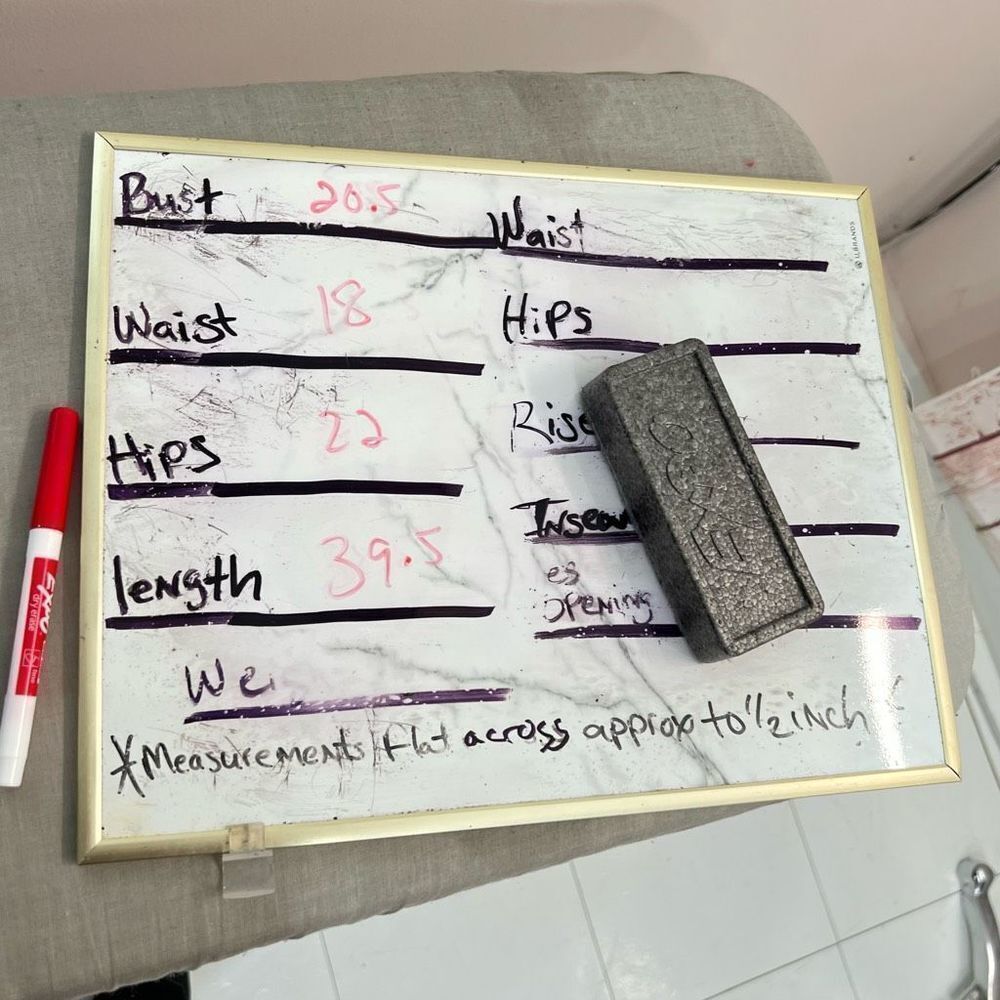 Bust 20.5
Waist 18
Hips 22
length 39.5
We
Waist
Hips
Rise
Inseam
es
opening
*Measurements Flat across approx to 1/2 inch *
U BRANDS
EXPO
dry erase